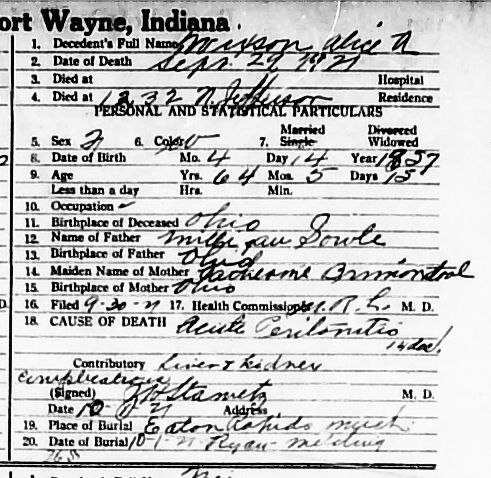 ort Wayne, Indiana
1. Decedent's Full Name Alice A
2. Date of Death Sept. 29 1921
3. Died at Hospital
4. Died at 1232 N. Jefferson Residence
PERSONAL AND STATISTICAL PARTICULARS
Married Divorced
5. Sex F 6. Color W 7. Single Widowed
8. Date of Birth Mo. 4 Day 14 Year 1857
9. Age Yrs. 64 Mos. 5 Days 15
Less than a day Hrs. Min.
10. Occupation -
11. Birthplace of Deceased Ohio
12. Name of Father Sowle
13. Birthplace of Father Ohio
14. Maiden Name of Mother Catherine
15. Birthplace of Mother Ohio
16. Filed 9-30-21 17. Health Commissioner M. D.
18. CAUSE OF DEATH Acute Peritonitis
14 das.
Contributory Liver & Kidney
Complications
(Signed) M. D.
Date 10 1 21 Address
19. Place of Burial Eaton Rapids Mich.
20. Date of Burial 10-1-21